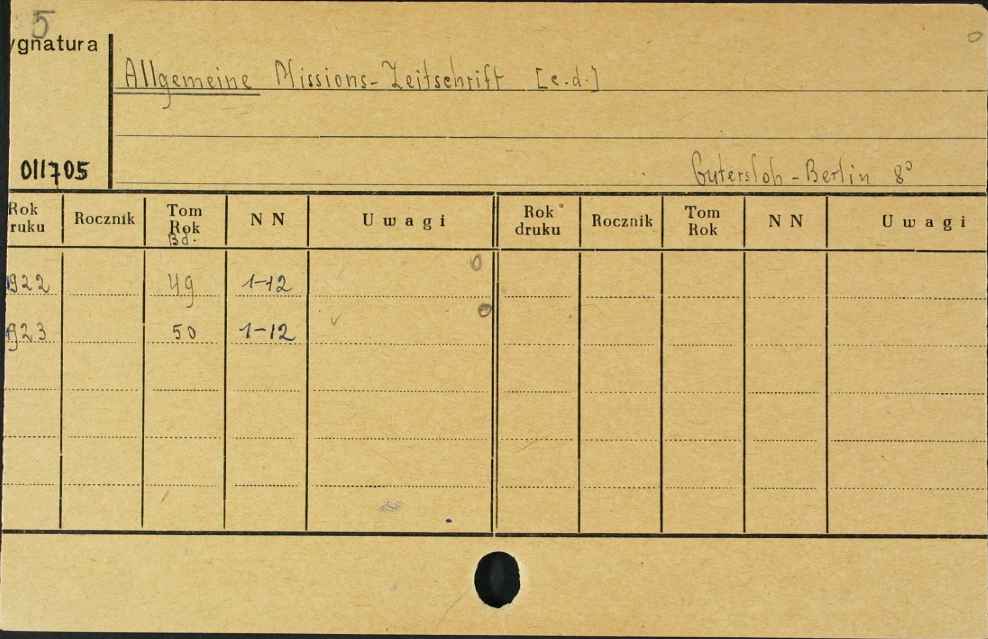 5
ygnatura
Allgemeine Missions-Zeitschrift [c.d.]
011705
Gutersloh-Berlin 8°
Rok druku Rocznik Tom Rok Bd. N N Uwagi Rok druku Rocznik Tom Rok N N Uwagi
1922 49 1-12
1923 50 1-12